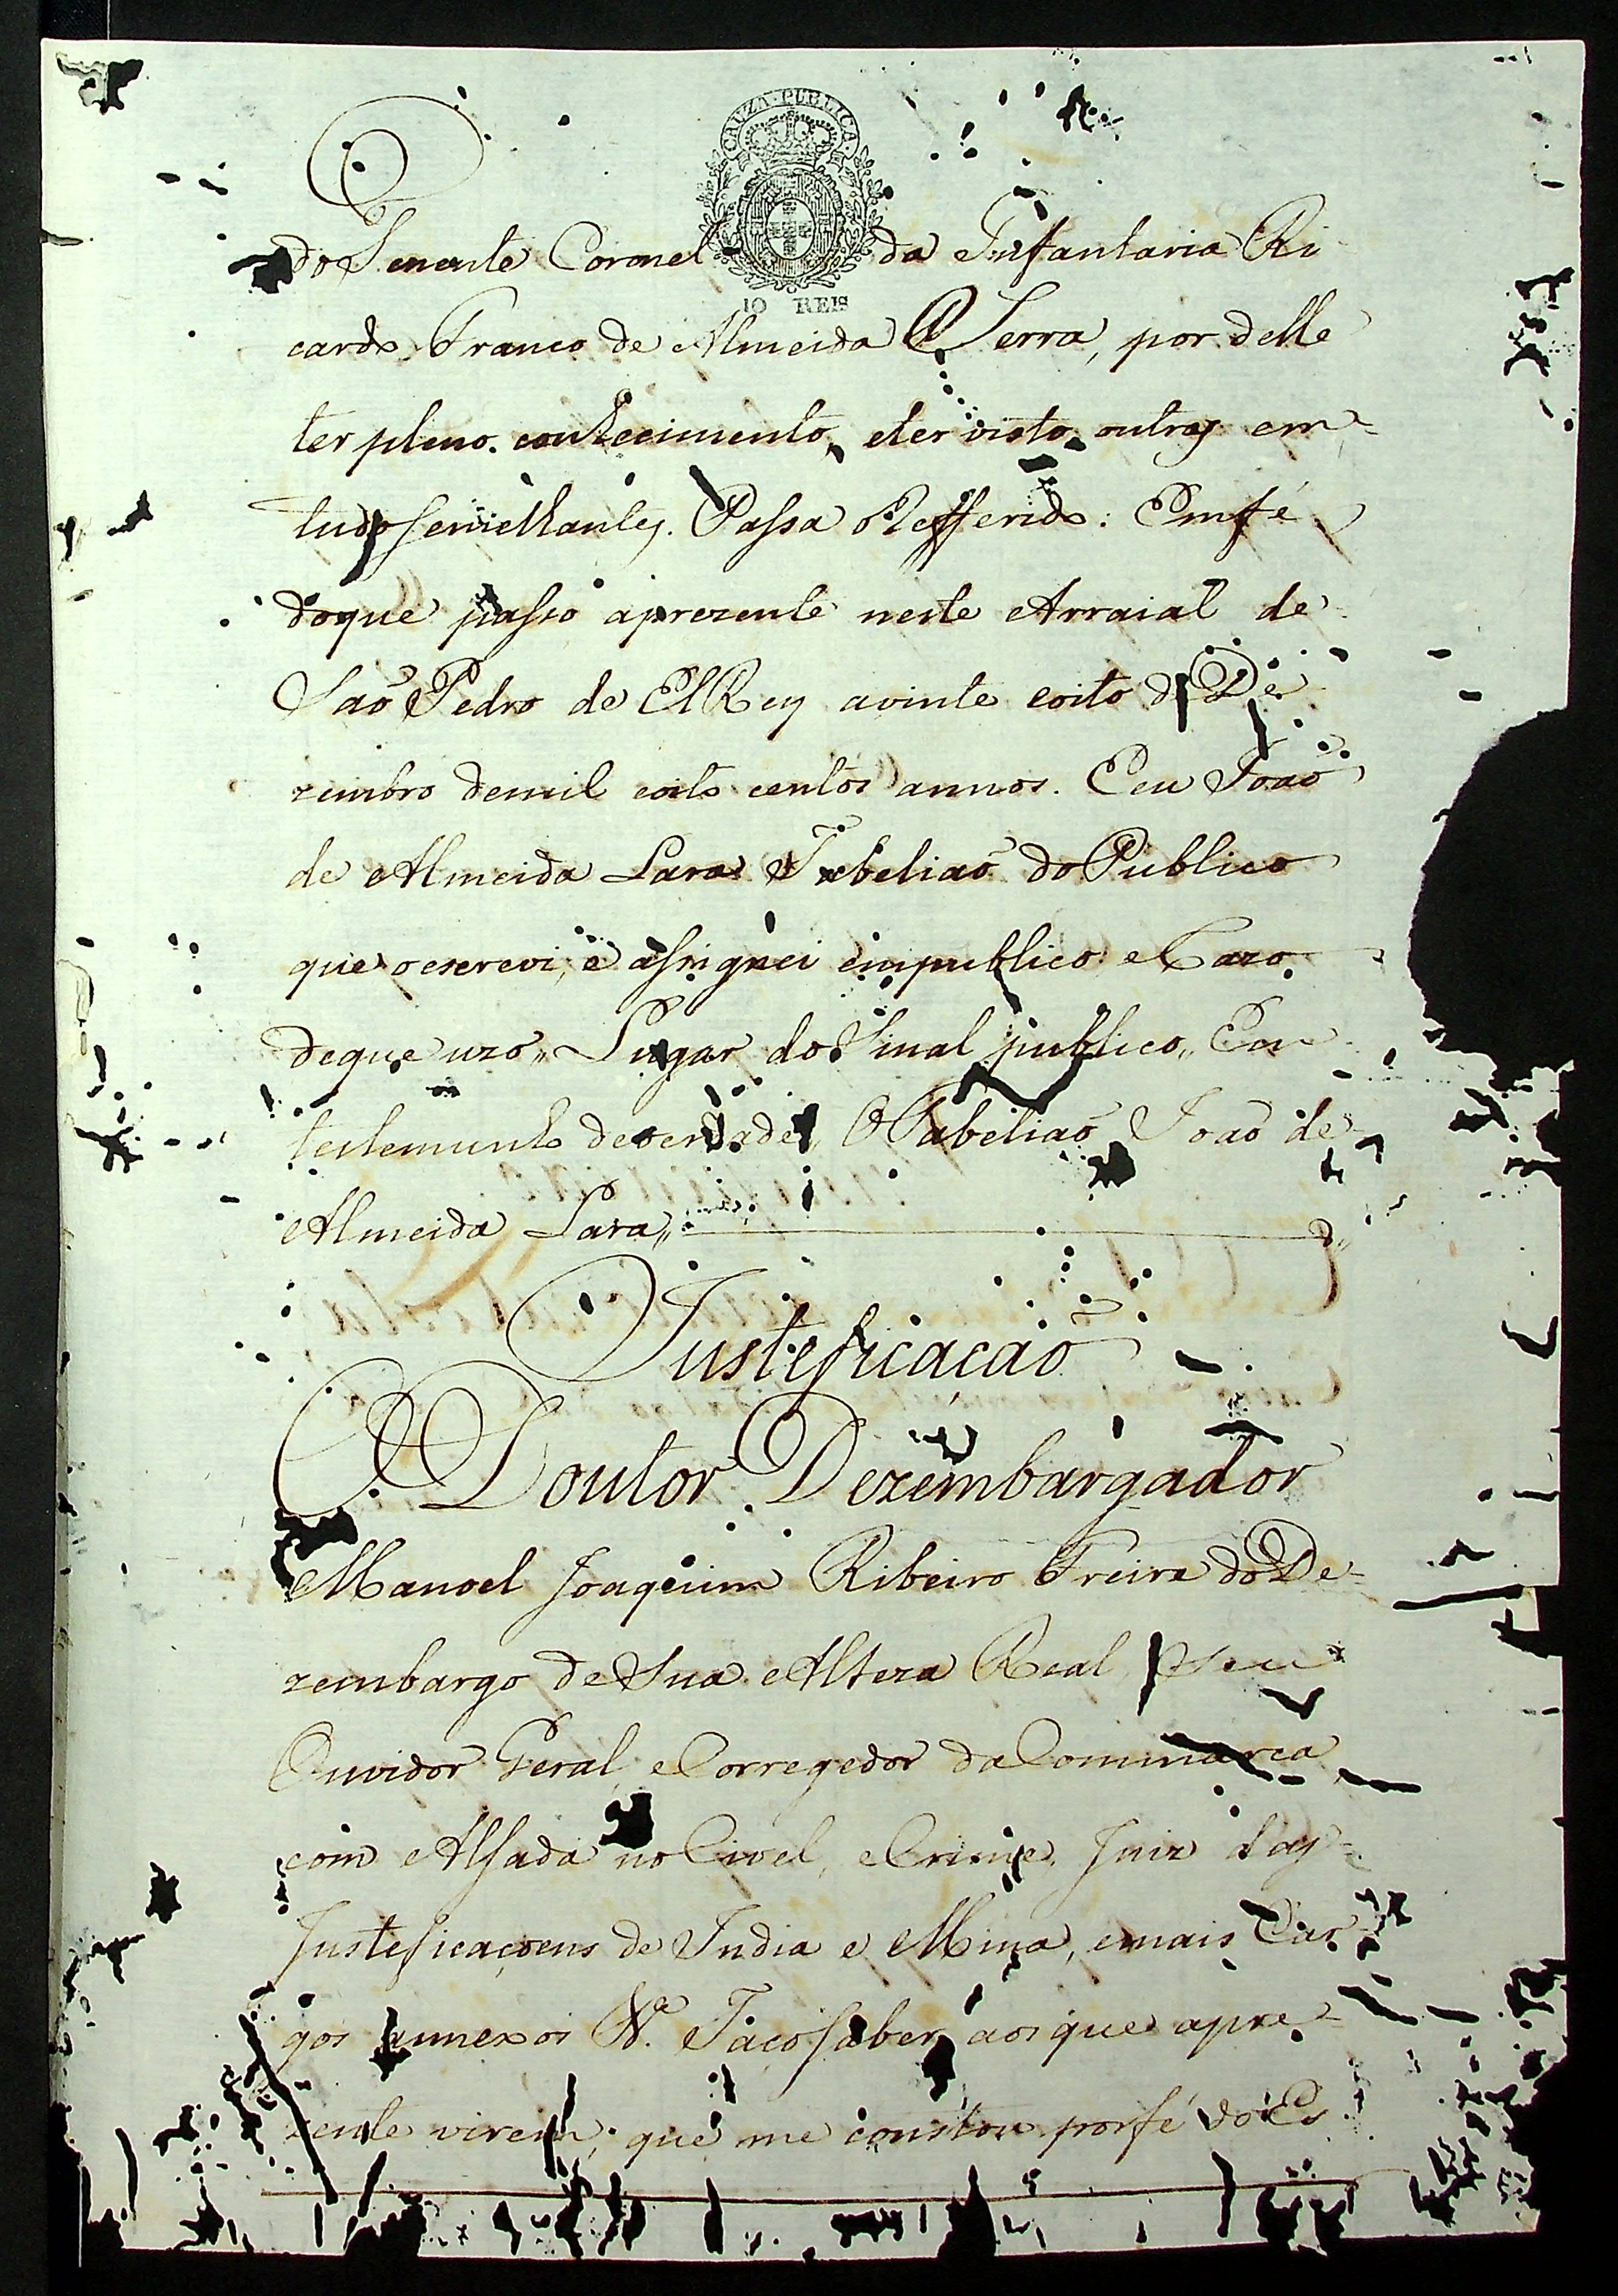 CAUZA PUBLICA
10 REIS
do Tenente Coronel da Infantaria Ri
cardo Franco de Almeida Serra, por delle
ter pleno conhecimento, eter visto outras em
tudo semelhantes. Passa o Refferido: Emfé
doque passo aprezente neste Arraial de
Saõ Pedro de ElRey avinte eoito de De
zembro demil eoito centos annos. Eeu Joaõ
de Almeida Lara Tabeliaõ do Publico
que oescrevi, e assignei empublico eRazo
deque uzo,, Lugar do Sinal publico,, Em
testemunho deverdade,, OTabeliaõ Joaõ de
Almeida Lara,,
Justeficacaõ
O Doutor Dezembargador
Manoel Joaquim Ribeiro Freire do De-
zembargo de Sua Alteza Real seu
Ouvidor Geral, eCorregedor daCommarca
com Alsada no Civel, eCrime, Juiz das
Justeficaçoens de India e Mina, emais Car
gos annexos &ª. Faco saber, aos que apre-
zente virem, que me constou por fé do Es